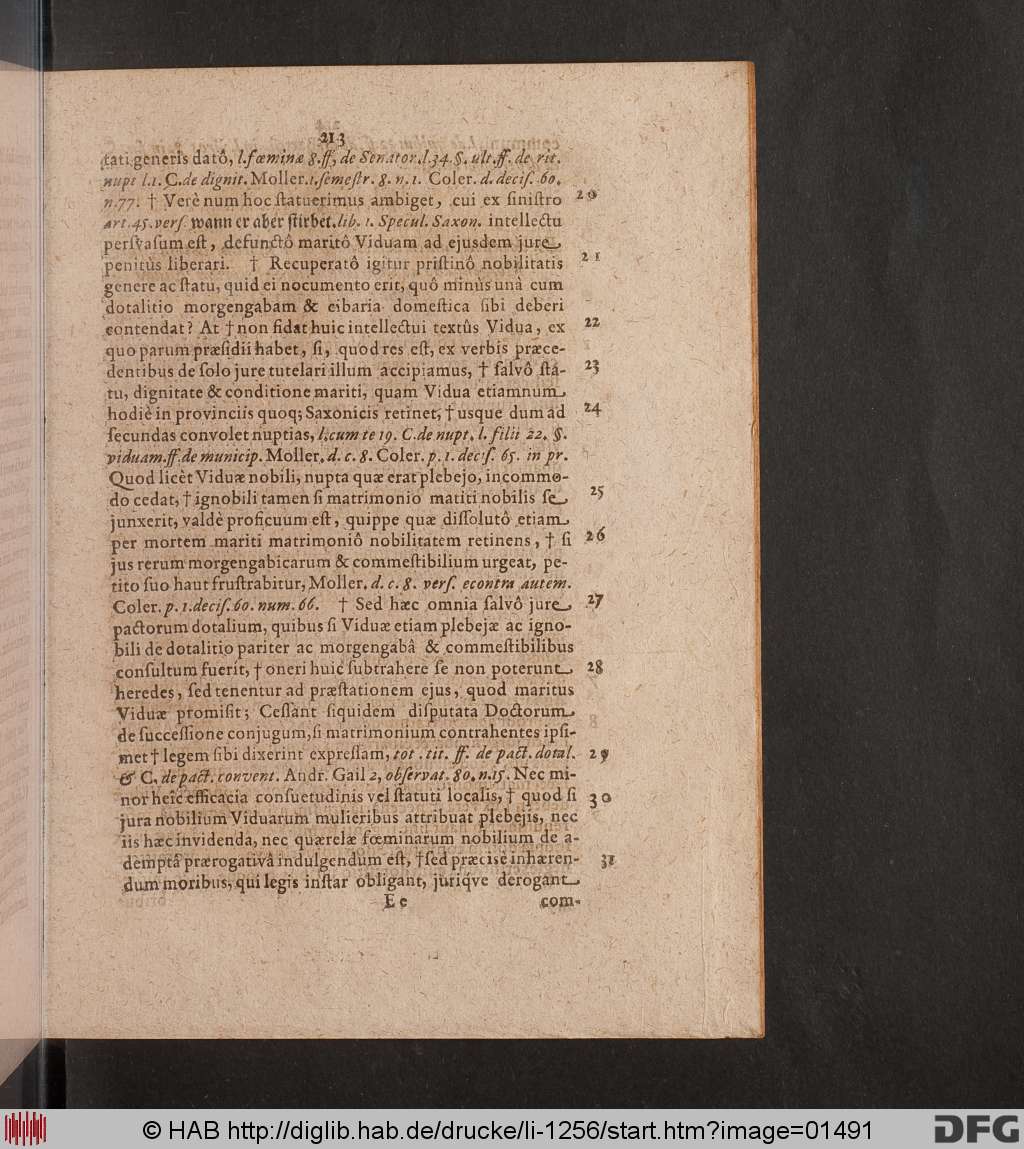 213
tati generis datô, l. fœminæ 8. ff, de Senator. l. 34. §. ult. ff. de rit.
nupt l. 1. C. de dignit. Moller. 1. semestr. 8. n. 1. Coler. d. decis. 60.
n. 77. † Verè num hoc statuerimus ambiget, cui ex sinistro 20
art. 45. vers. wann er aber stirbet. lib. 1. Specul. Saxon. intellectu
persvasum est, defunctô maritô Viduam ad ejusdem jure
penitùs liberari. † Recuperatô igitur pristinô nobilitatis 21
genere ac statu, quid ei nocumento erit, quô minùs unà cum
dotalitio morgengabam & cibaria domestica sibi deberi
contendat? At † non fidat huic intellectui textûs Vidua, ex 22
quo parum præsidii habet, si, quod res est, ex verbis præce-
dentibus de solo jure tutelari illum accipiamus, † salvô sta- 23
tu, dignitate & conditione mariti, quam Vidua etiamnum
hodiè in provinciis quoq; Saxonicis retinet, † usque dum ad 24
secundas convolet nuptias, l. cum te 19. C. de nupt. l. filii 22. §.
viduam. ff. de municip. Moller. d. c. 8. Coler. p. 1. decis. 65. in pr.
Quod licèt Viduæ nobili, nupta quæ erat plebejo, incommo-
do cedat, † ignobili tamen si matrimonio matiti nobilis se 25
junxerit, valdè proficuum est, quippe quæ dissolutô etiam
per mortem mariti matrimoniô nobilitatem retinens, † si 26
jus rerum morgengabicarum & commestibilium urgeat, pe-
tito suo haut frustrabitur, Moller. d. c. 8. vers. econtra autem.
Coler. p. 1. decis. 60. num. 66. † Sed hæc omnia salvô jure 27
pactorum dotalium, quibus si Viduæ etiam plebejæ ac igno-
bili de dotalitio pariter ac morgengabâ & commestibilibus
consultum fuerit, † oneri huic subtrahere se non poterunt 28
heredes, sed tenentur ad præstationem ejus, quod maritus
Viduæ promisit; Cessant siquidem disputata Doctorum
de successione conjugum, si matrimonium contrahentes ipsi-
met † legem sibi dixerint expressam, tot. tit. ff. de pact. dotal. 29
& C. de pact. convent. Andr. Gail 2, observat. 80. n. 15. Nec mi-
nor heîc efficacia consuetudinis vel statuti localis, † quod si 30
jura nobilium Viduarum mulieribus attribuat plebejis, nec
iis hæc invidenda, nec quærelæ fœminarum nobilium de a-
demptâ prærogativâ indulgendum est, † sed præcisè inhæren- 31
dum moribus, qui legis instar obligant, juriqve derogant
Ee com-
© HAB http://diglib.hab.de/drucke/li-1256/start.htm?image=01491
DFG